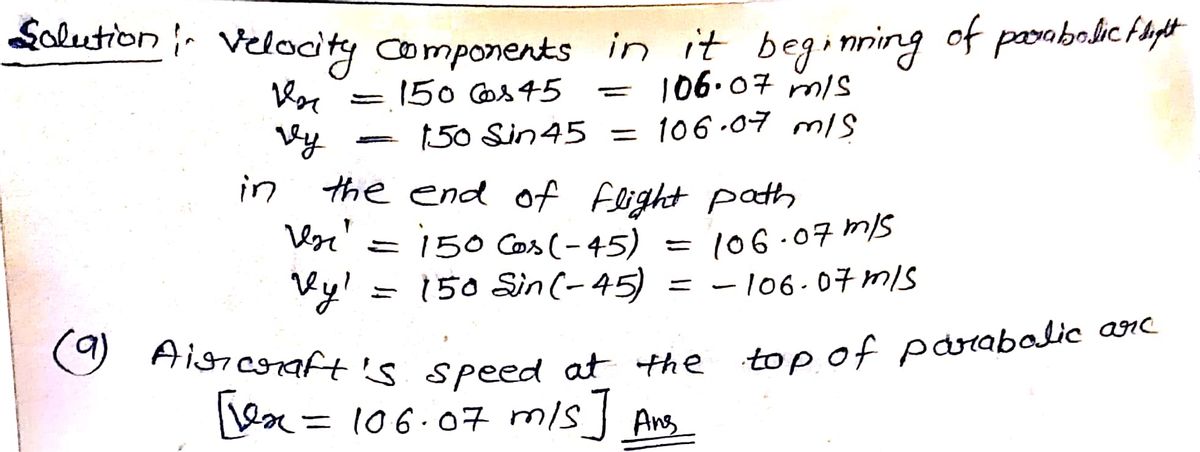 Solution :- Velocity components in it beginning of parabolic flight
Vx = 150 Cos 45 = 106.07 m/s
Vy = 150 Sin 45 = 106.07 m/s
in the end of flight path
Vx' = 150 Cos(-45) = 106.07 m/s
Vy' = 150 Sin(-45) = -106.07 m/s
(a) Aircraft's speed at the top of parabolic arc
[Vx = 106.07 m/s] Ans